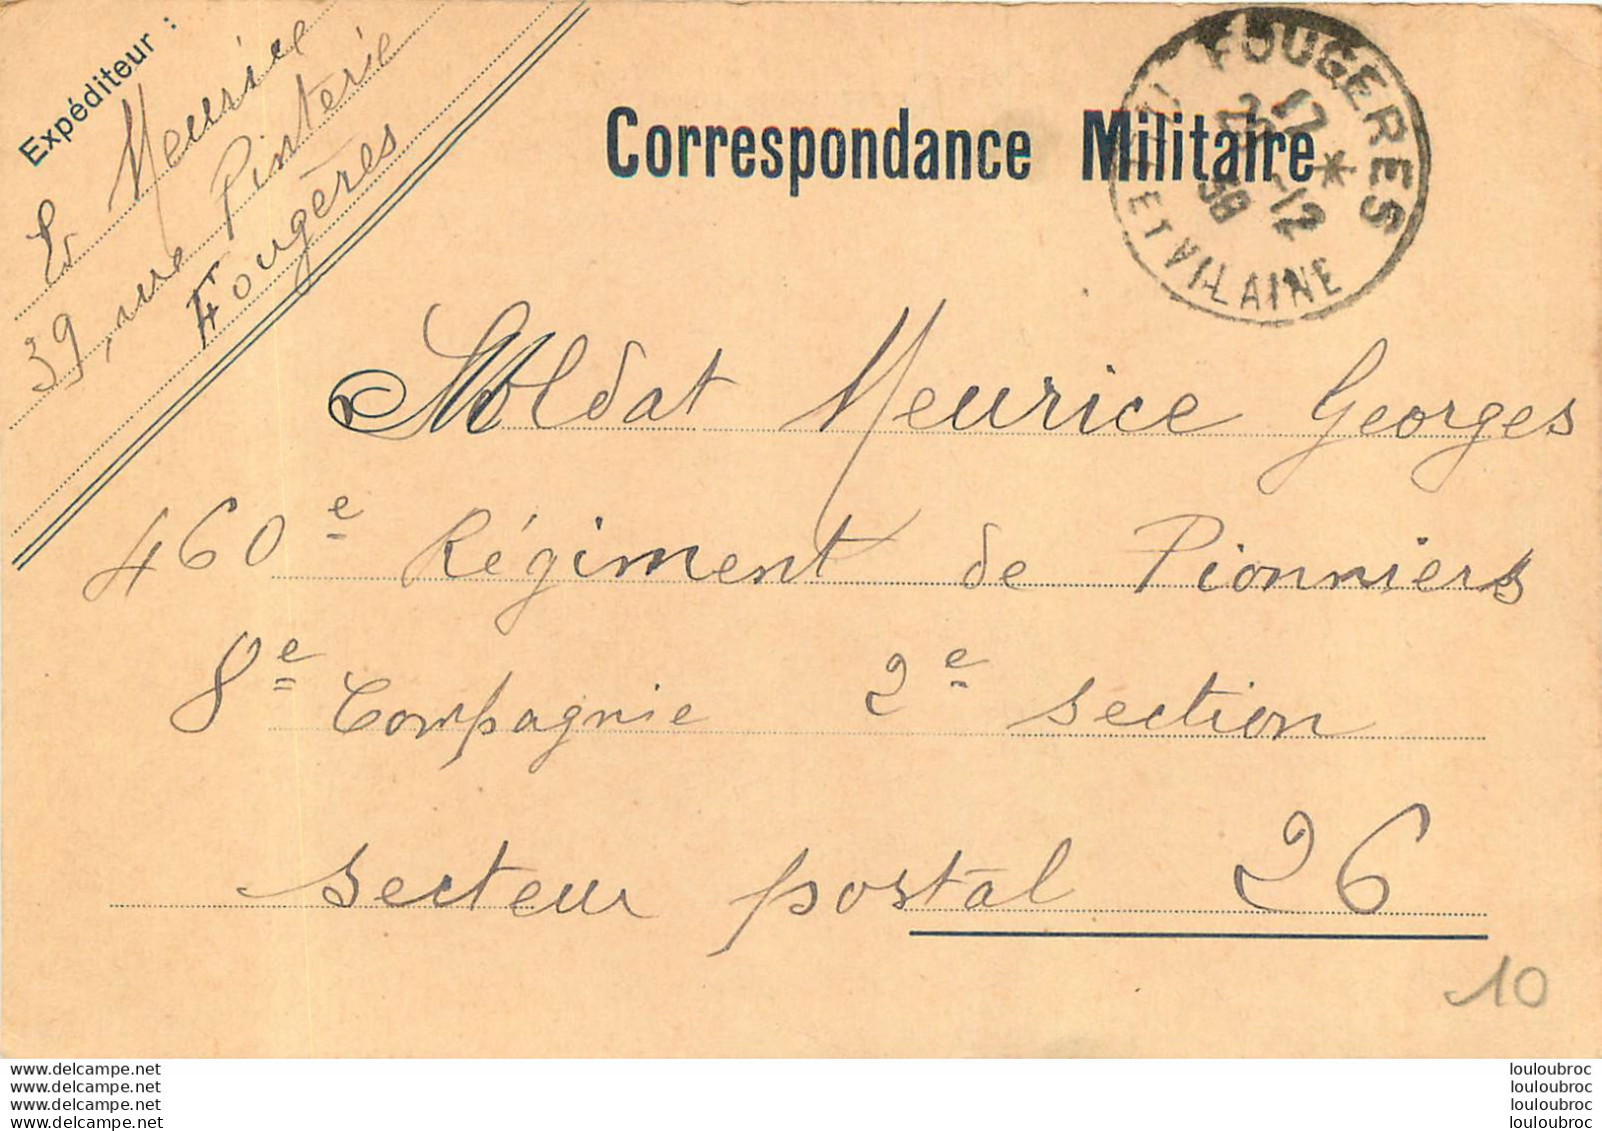 Expéditeur :
Ed Meurice
39, rue Pinterie
Fougères
Correspondance Militaire
FOUGERES
17 *
-12
ET VILAINE
Soldat Meurice Georges
460e Régiment de Pionniers
8e Compagnie 2e section
secteur postal 26
10
www.delcampe.net
www.delcampe.net
www.delcampe.net
www.delcampe.net
louloubroc
louloubroc
louloubroc
louloubroc